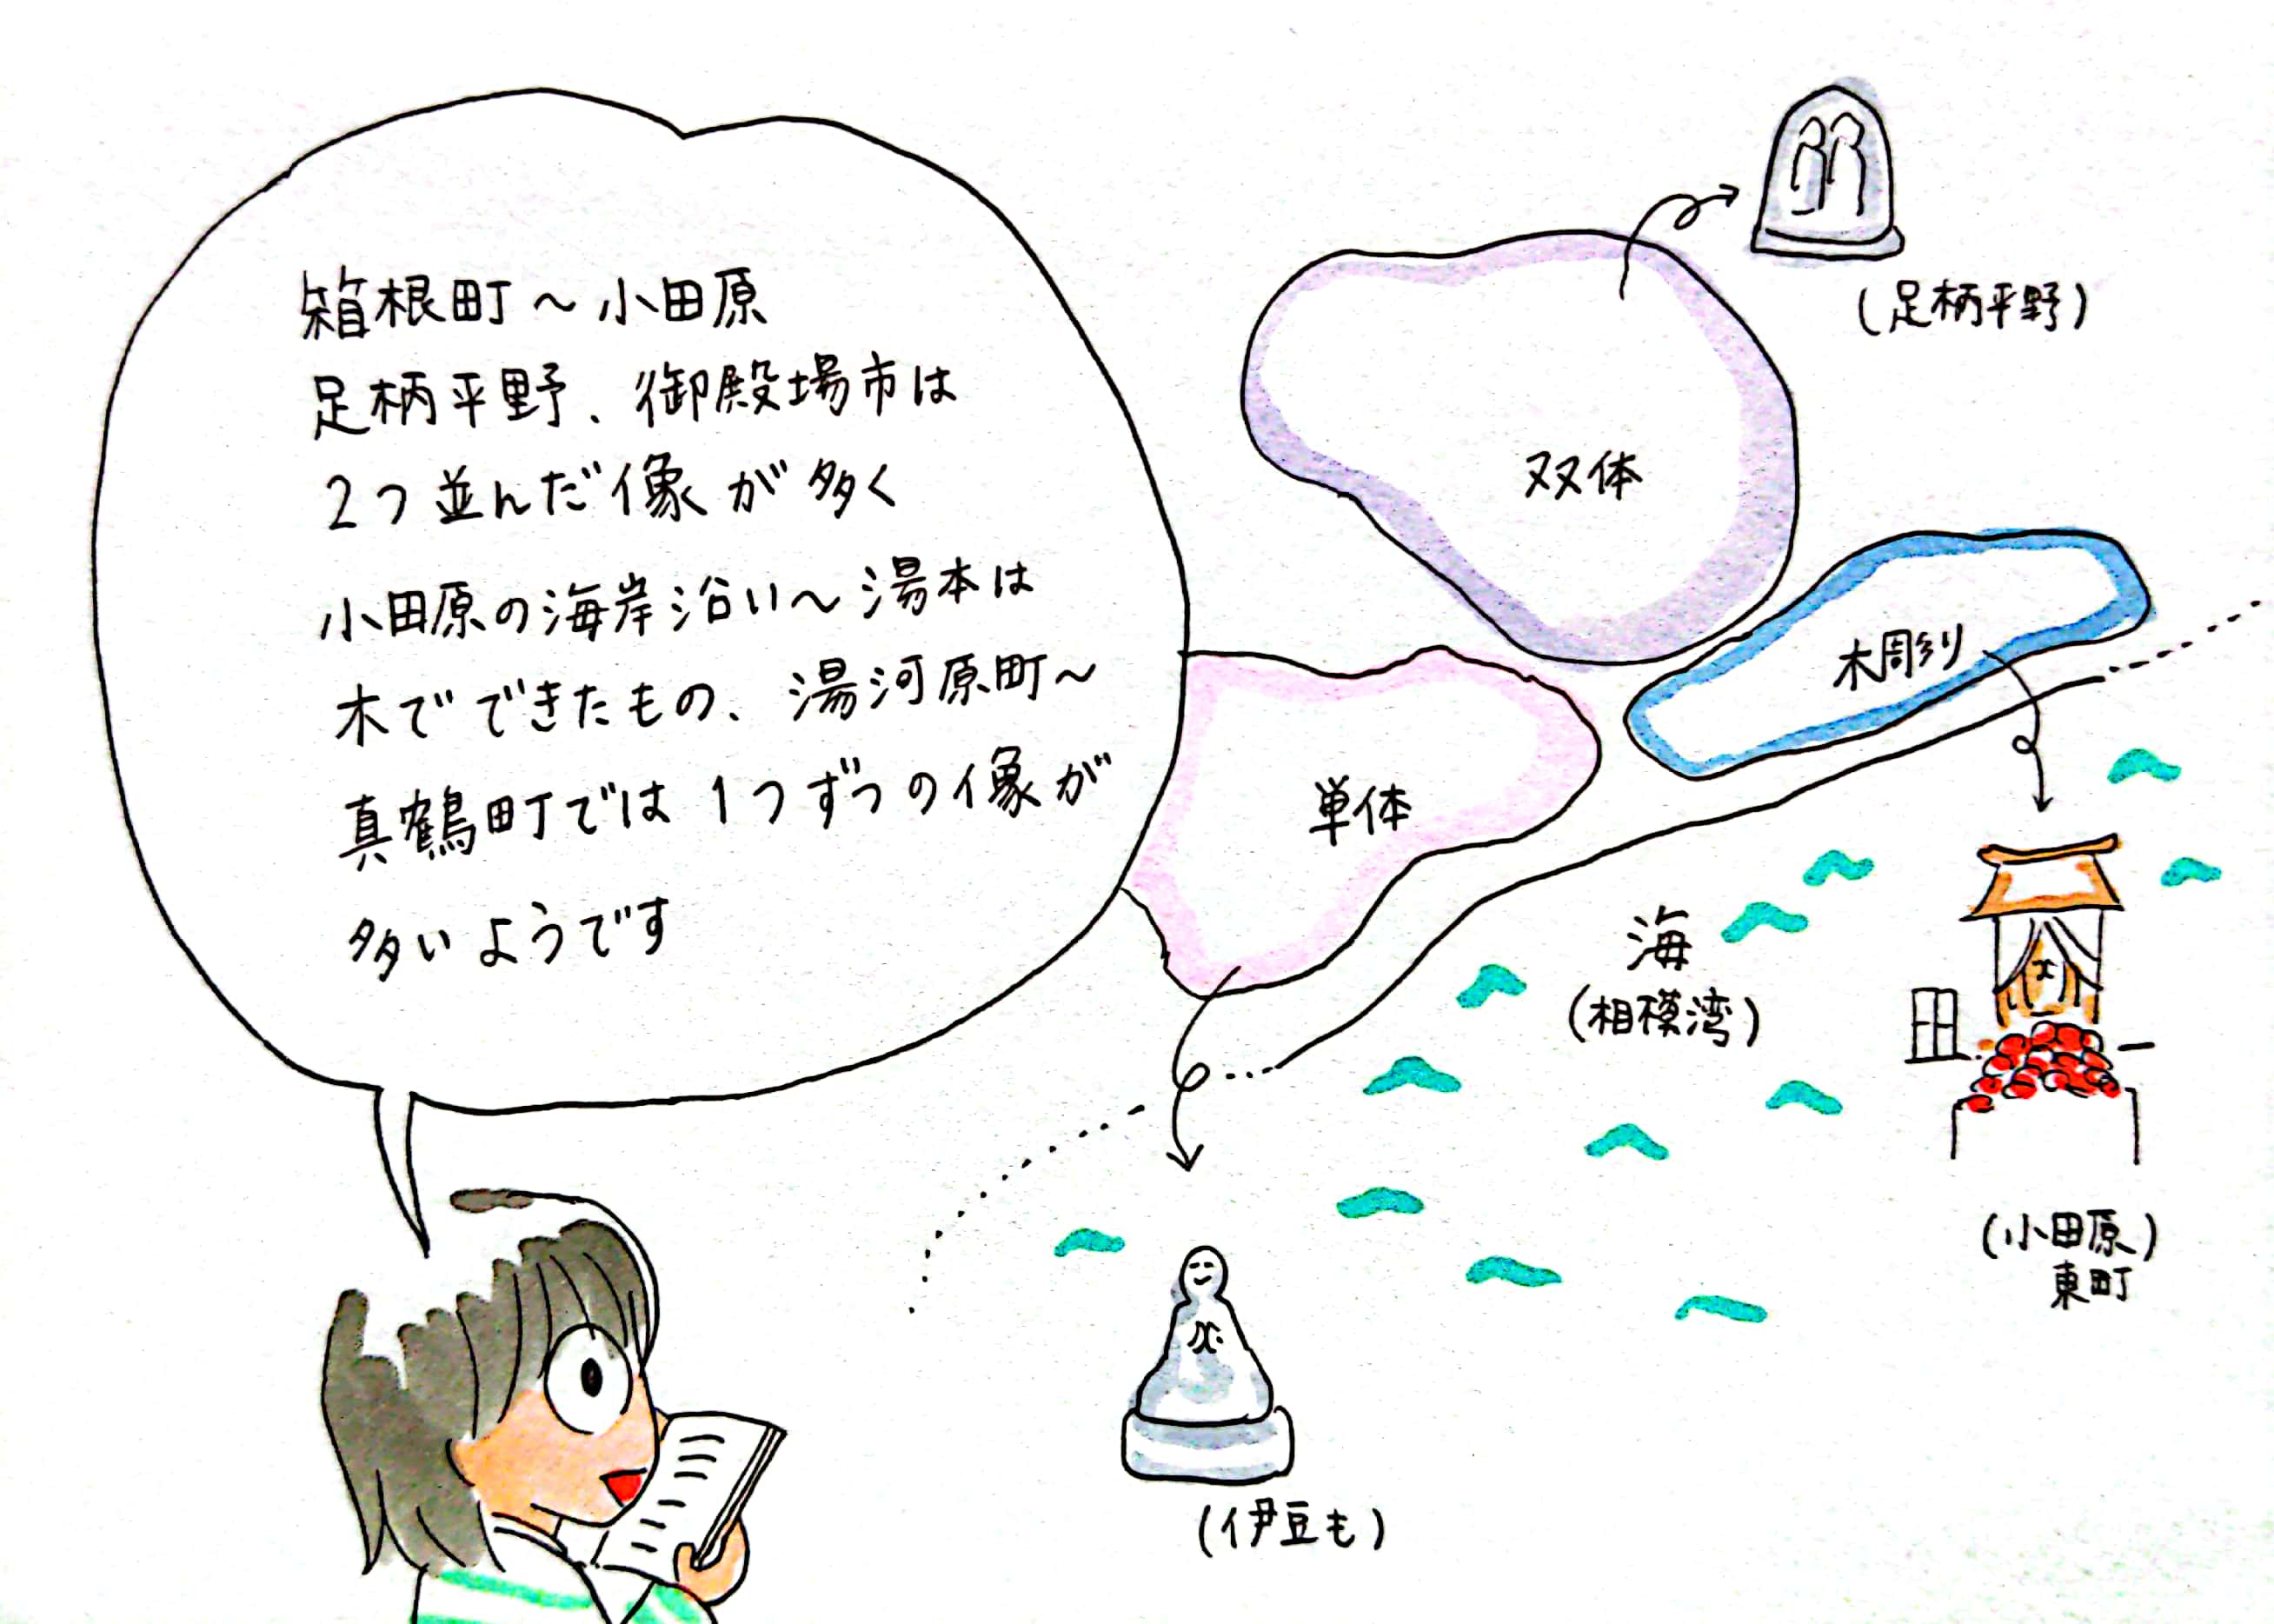 箱根町～小田原
足柄平野、御殿場市は
2つ並んだ像が多く
小田原の海岸沿い～湯本は
木でできたもの、湯河原町～
真鶴町では1つずつの像が
多いようです
(足柄平野)
双体
木彫り
単体
海
(相模湾)
(小田原)
東町
(伊豆も)